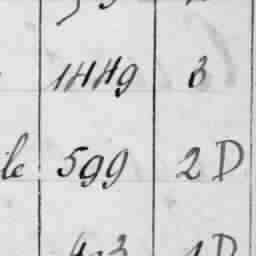 1449 3
le 599 2 D